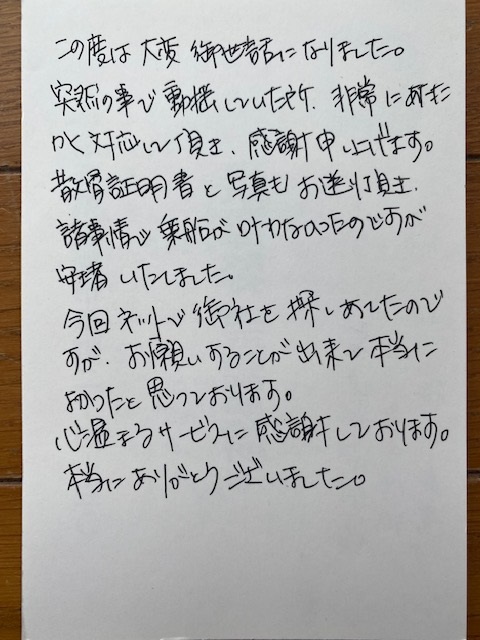 この度は大変御世話になりました。
突然の事で動揺していた所、非常にあたた
かく対応して頂き、感謝申し上げます。
散骨証明書と写真もお送り頂き、
諸事情で乗船が叶わなかったのですが
安堵いたしました。
今回ネットで御社を探しあてたので
すが、お願いすることが出来て本当に
よかったと思っております。
心温まるサービスに感謝しております。
本当にありがとうございました。